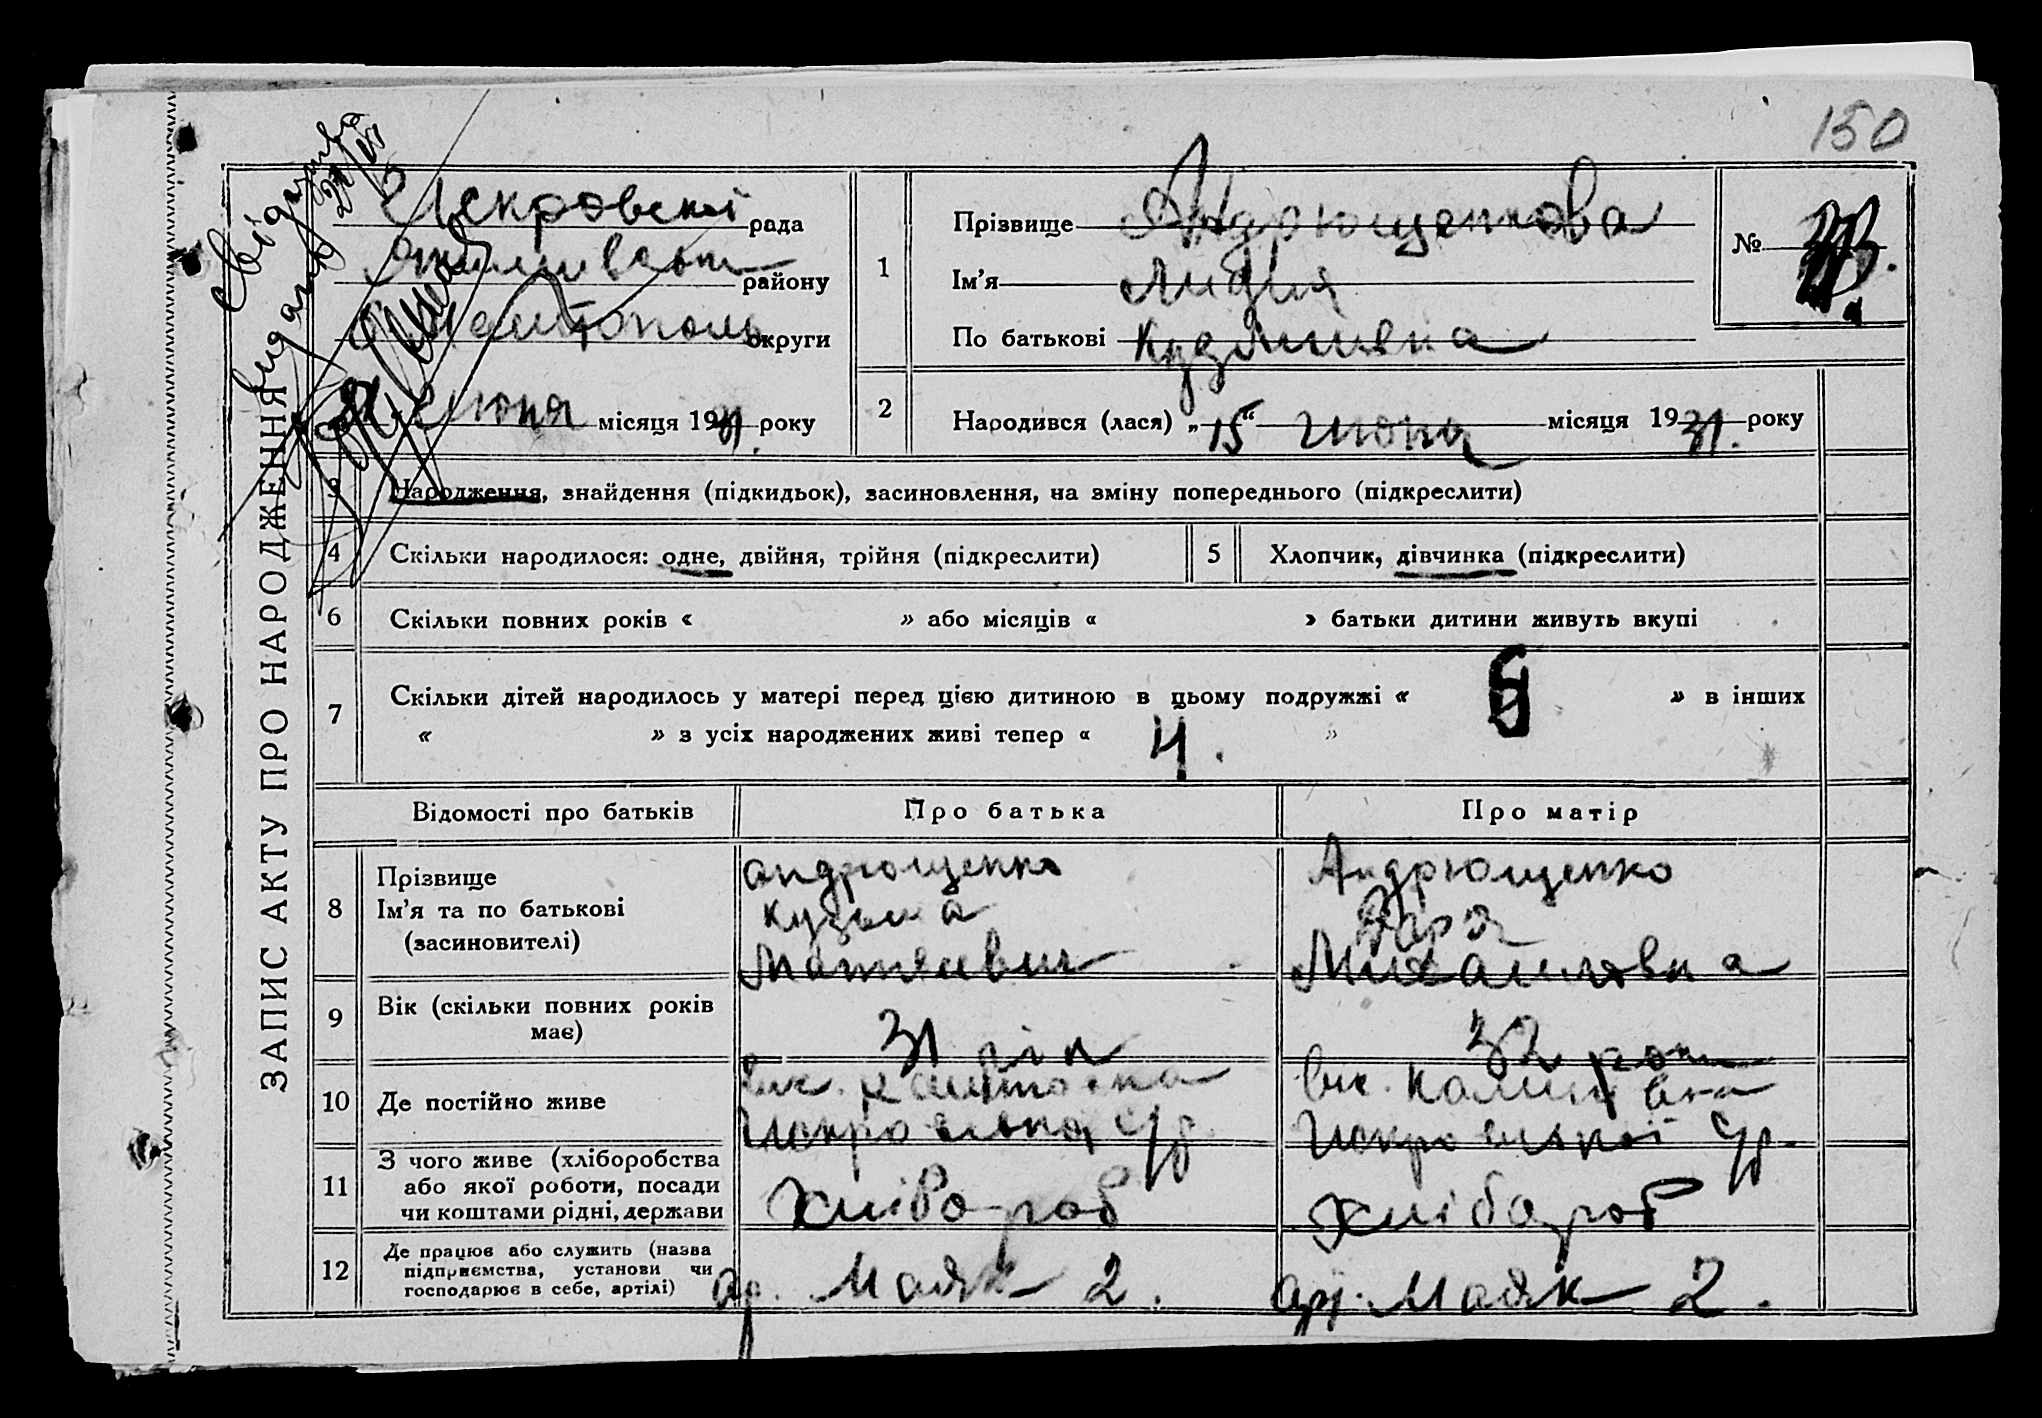 150
Свідоцтво
видано
Искровської рада
району
округи
июня місяця 1931. року
ЗАПИС АКТУ ПРО НАРОДЖЕННЯ
1 Прізвище Андрющенкова
Ім'я Лидия
По батькові Кузьмивна
№
2 Народився (лася) „15“ июня місяця 1931. року
3 Народження, знайдення (підкидьок), засиновлення, на зміну попереднього (підкреслити)
4 Скільки народилося: одне, двійня, трійня (підкреслити) 5 Хлопчик, дівчинка (підкреслити)
6 Скільки повних років « » або місяців « » батьки дитини живуть вкупі
7 Скільки дітей народилось у матері перед цією дитиною в цьому подружжі « » в інших
« » з усіх народжених живі тепер « 4. »
Відомості про батьків Про батька Про матір
8 Прізвище
Ім'я та по батькові
(засиновителі)
Андрющенко
Кузьма
Матвієвич
Андрющенко
Дар'я
Михайловна
9 Вік (скільки повних років
має)
31 рік
32 рок
10 Де постійно живе
вис. Калиновка
Искровської с/р.
11 З чого живе (хліборобства
або якої роботи, посади
чи коштами рідні, держави
Хлібороб
Хлібороб
12 Де працює або служить (назва
підприємства, установи чи
господарює в себе, артілі)
ар. Маяк 2.
арт. Маяк 2.